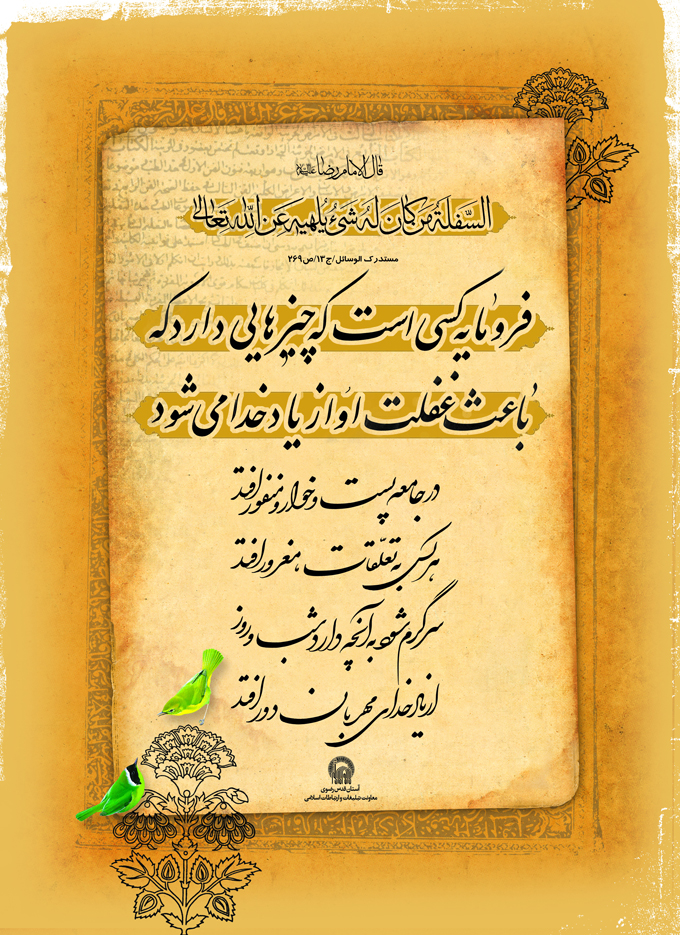 قال الامام رضا علیه‌السلام
السَّفلَةُ مَن کانَ لَهُ شَیءٌ یُلهیهِ عَنِ اللهِ تَعالی
مستدرک الوسائل/ج۱۳/ص۲۶۹
فرومایه کسی است که چیزهایی دارد که
باعث غفلت او از یاد خدا می شود
در جامعه پست و خوار و منفور افتد
هر کس به تعلّقات مغرور افتد
سرگرم شود به آنچه دارد شب و روز
از یاد خدای مهربان دور افتد
آستان قدس رضوی
معاونت تبلیغات و ارتباطات اسلامی